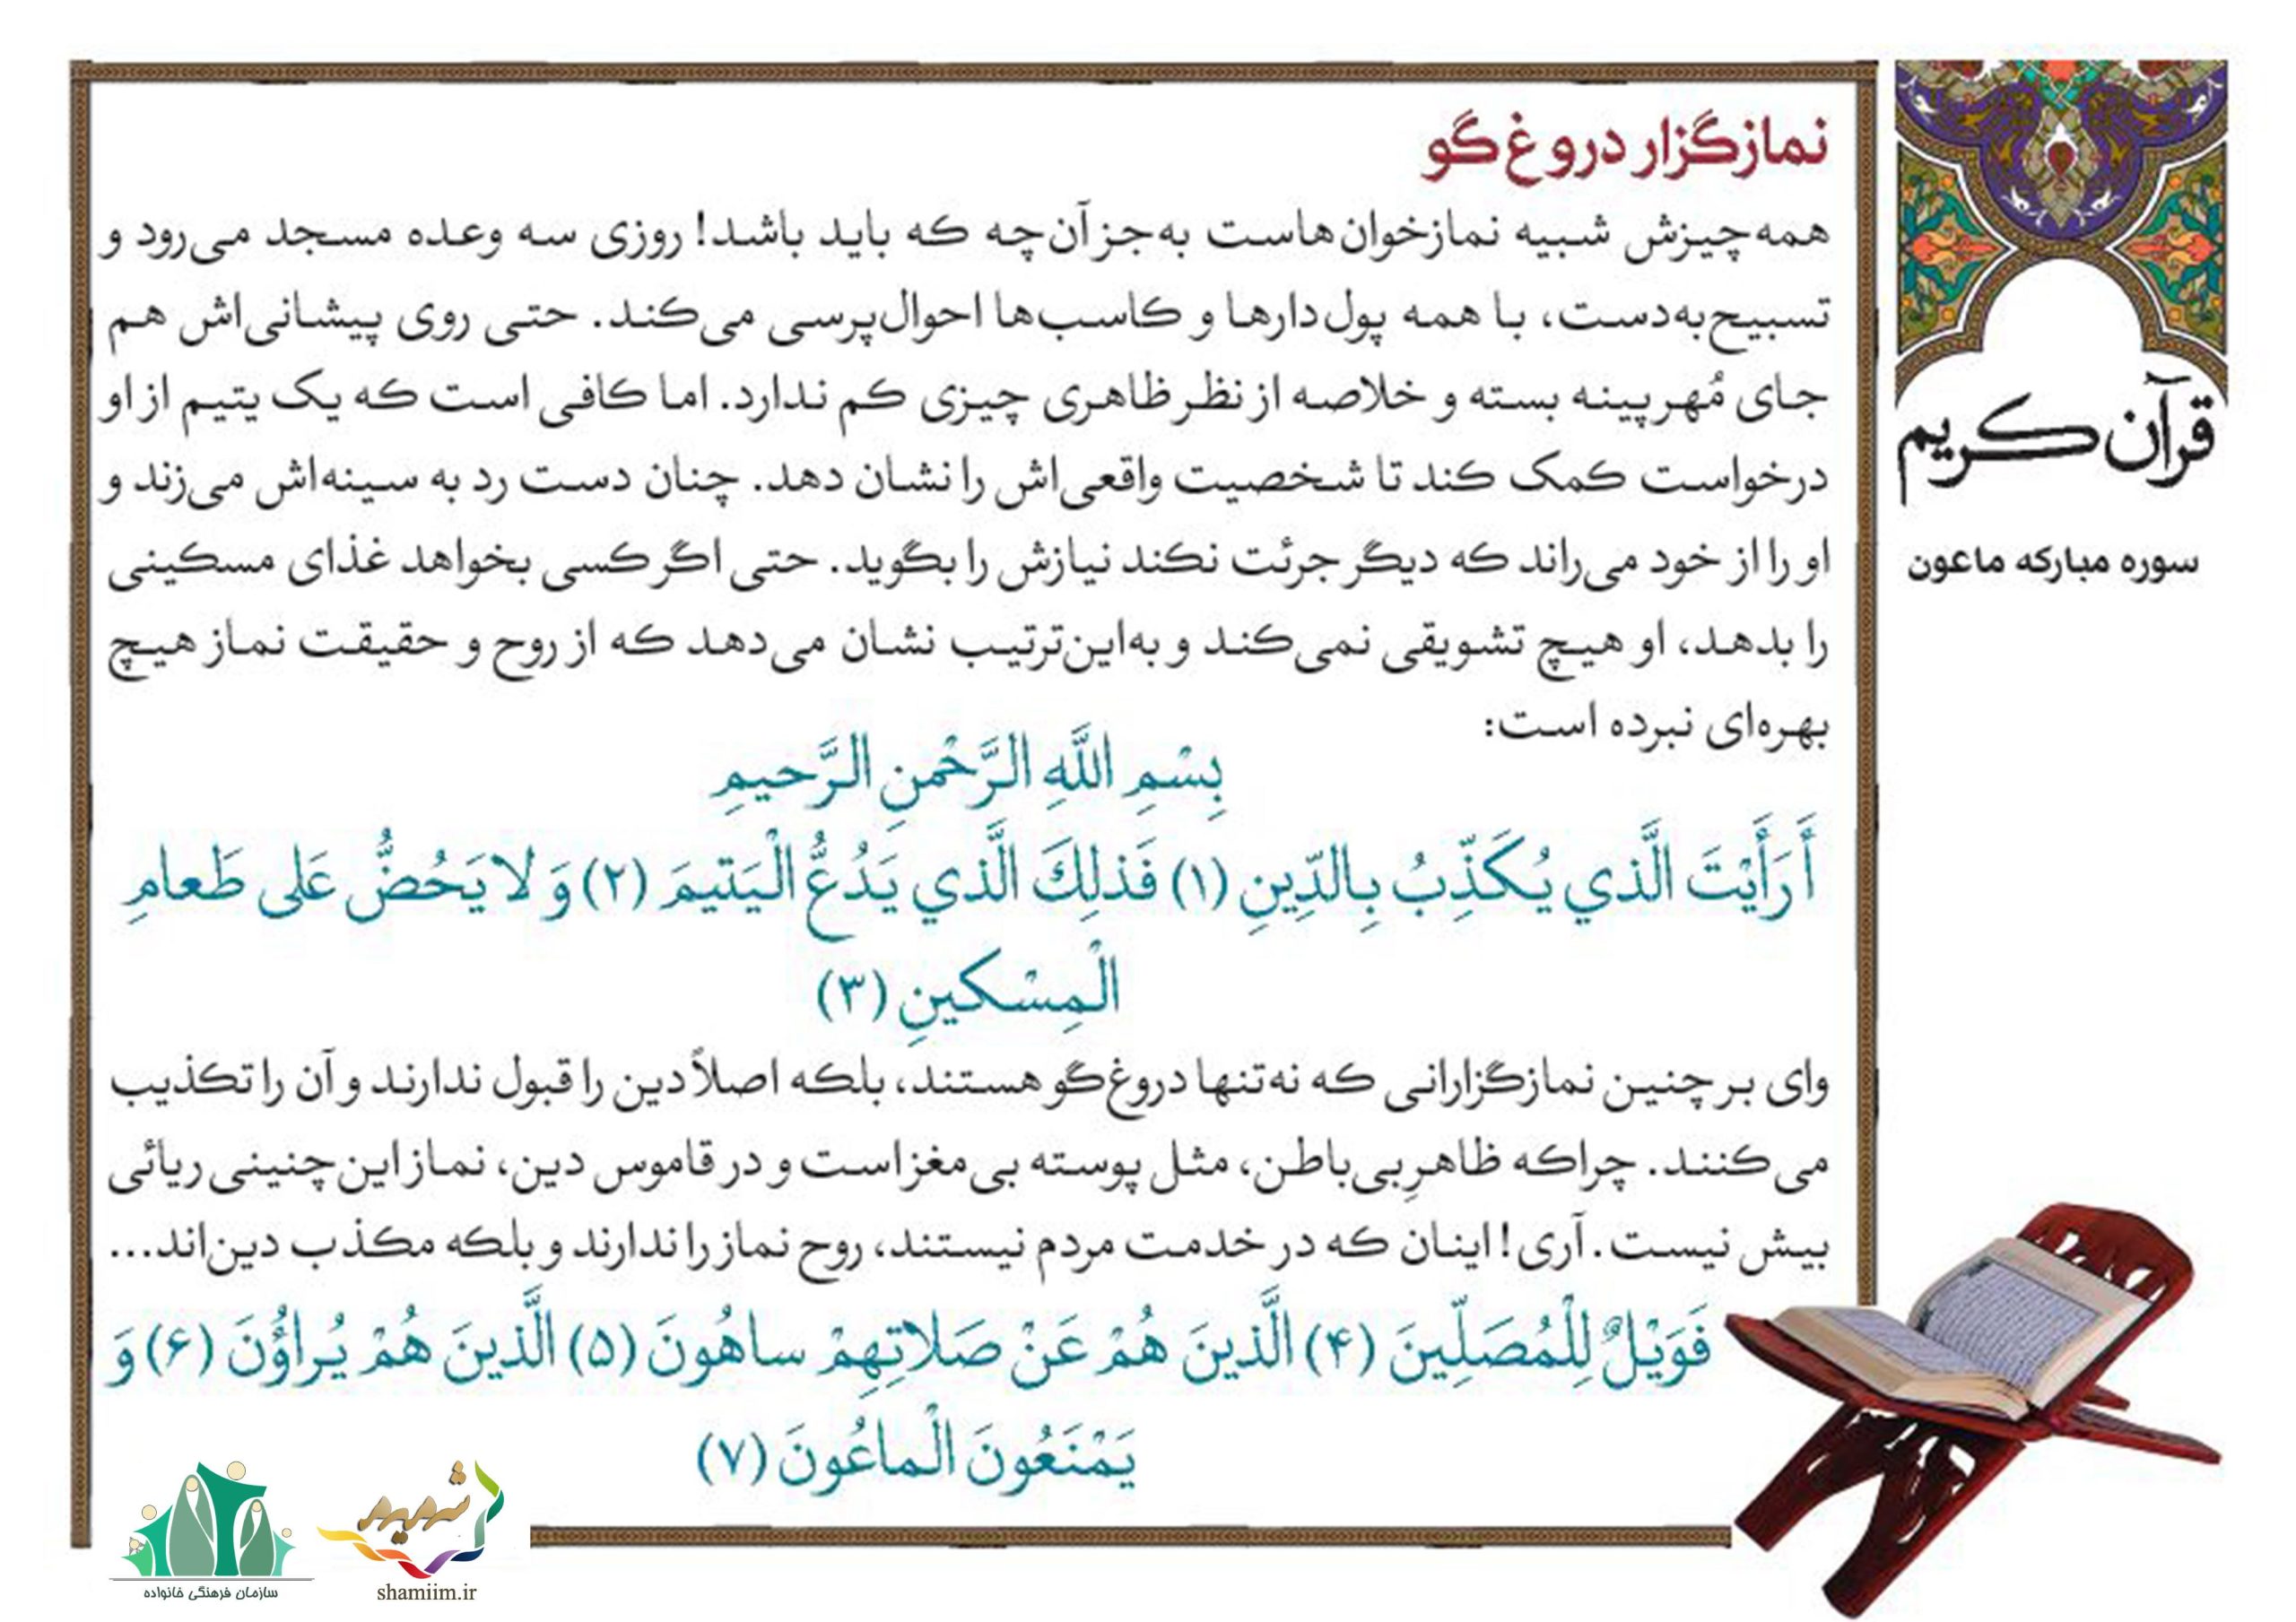 نمازگزار دروغ‌گو
همه‌چیزش شبیه نمازخوان‌هاست به‌جز آن‌چه که باید باشد! روزی سه وعده مسجد می‌رود و
تسبیح‌به‌دست، با همه پول‌دارها و کاسب‌ها احوال‌پرسی می‌کند. حتی روی پیشانی‌اش هم
جای مُهر پینه بسته و خلاصه از نظر ظاهری چیزی کم ندارد. اما کافی است که یک یتیم از او
درخواست کمک کند تا شخصیت واقعی‌اش را نشان دهد. چنان دست رد به سینه‌اش می‌زند و
او را از خود می‌راند که دیگر جرئت نکند نیازش را بگوید. حتی اگر کسی بخواهد غذای مسکینی
را بدهد، او هیچ تشویقی نمی‌کند و به‌این‌ترتیب نشان می‌دهد که از روح و حقیقت نماز هیچ
بهره‌ای نبرده است:
بِسْمِ اللَّهِ الرَّحْمنِ الرَّحیمِ
أَ رَأَیْتَ الَّذي یُکَذِّبُ بِالدِّینِ (۱) فَذلِكَ الَّذي یَدُعُّ الْیَتیمَ (۲) وَ لا یَحُضُّ عَلی طَعامِ
الْمِسْکینِ (۳)
وای بر چنین نمازگزارانی که نه‌تنها دروغ‌گو هستند، بلکه اصلاً دین را قبول ندارند و آن را تکذیب
می‌کنند. چراکه ظاهرِ بی‌باطن، مثل پوسته بی‌مغز است و در قاموس دین، نماز این‌چنینی ریائی
بیش نیست. آری! اینان که در خدمت مردم نیستند، روح نماز را ندارند و بلکه مکذب دین‌اند...
فَوَیْلٌ لِلْمُصَلِّینَ (۴) الَّذینَ هُمْ عَنْ صَلاتِهِمْ ساهُونَ (۵) الَّذینَ هُمْ یُراؤُنَ (۶) وَ
یَمْنَعُونَ الْماعُونَ (۷)
قرآن کریم
سوره مبارکه ماعون
سازمان فرهنگی خانواده
shamiim.ir